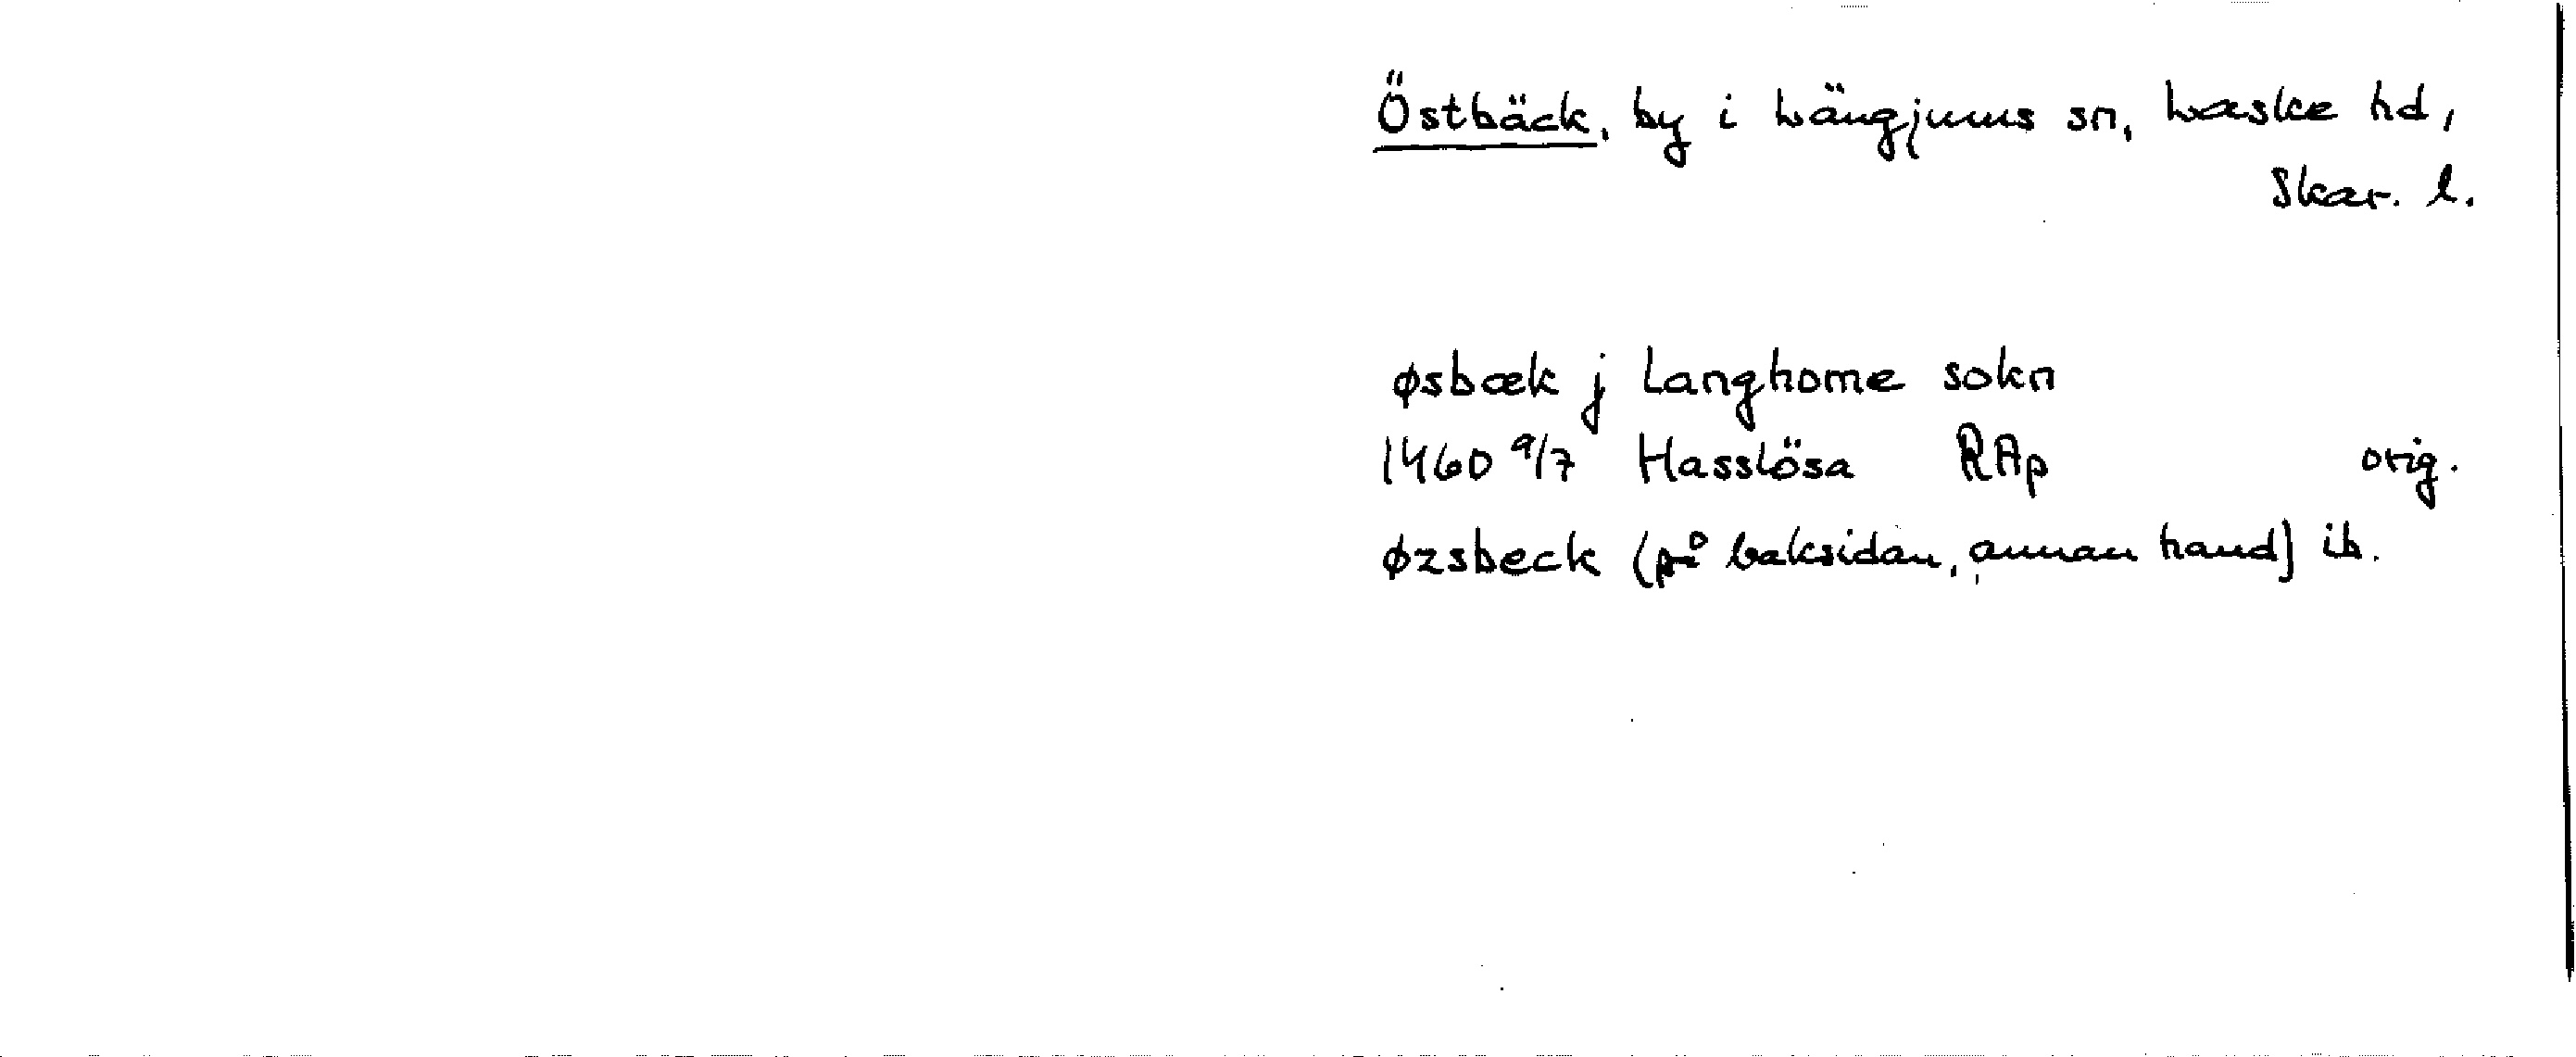 Östbäck, by i Längjums sn, Laske hd,
Skar. l.
øsbæk j Langhome sokn
1460 9/7 Hasslösa RAp orig.
øzsbeck (på baksidan, annan hand) ib.